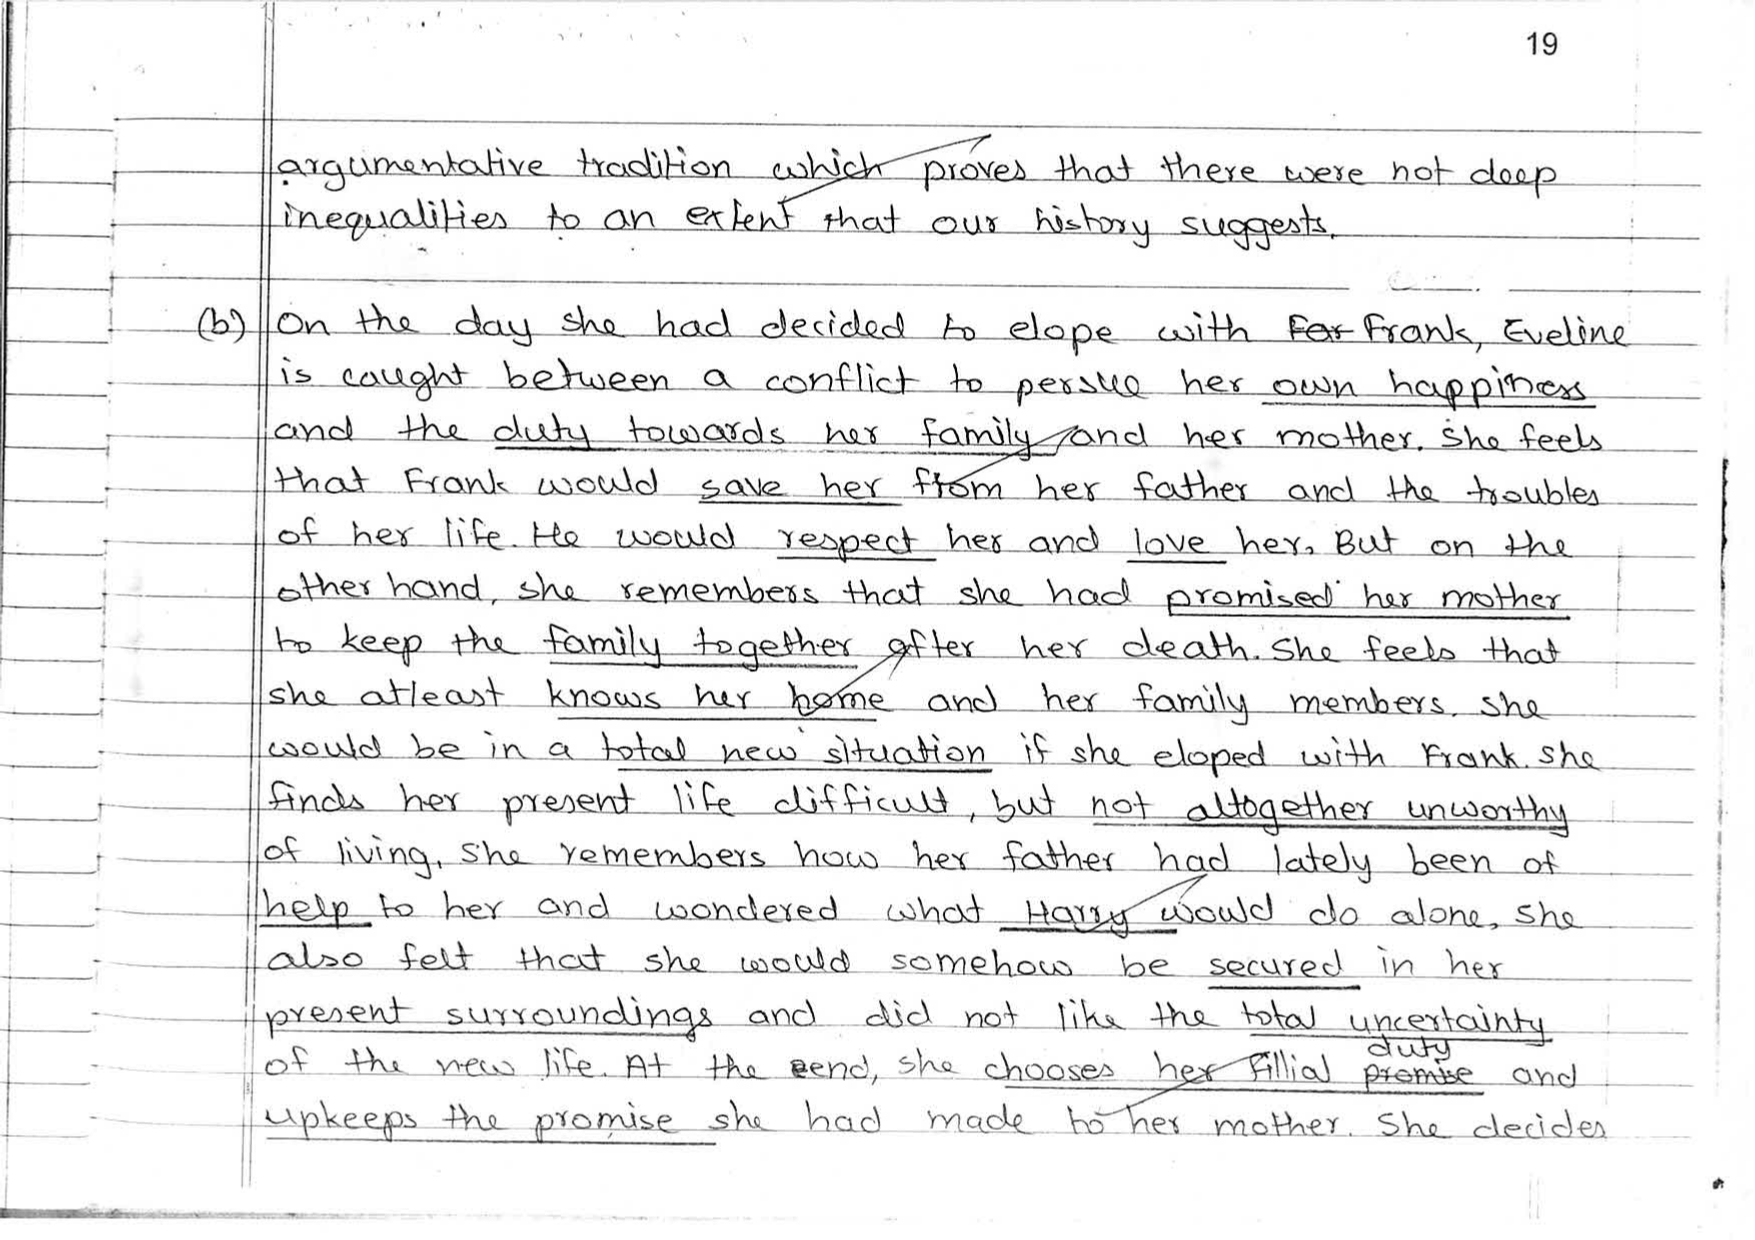 19
argumentative tradition which proves that there were not deep
inequalities to an extent that our history suggests.
(b) On the day she had decided to elope with Far Frank, Eveline
is caught between a conflict to persue her own happiness
and the duty towards her family and her mother. She feels
that Frank would save her from her father and the troubles
of her life. He would respect her and love her. But on the
other hand, she remembers that she had promised her mother
to keep the family together after her death. She feels that
she atleast knows her home and her family members. She
would be in a total new situation if she eloped with Frank. She
finds her present life difficult, but not altogether unworthy
of living. She remembers how her father had lately been of
help to her and wondered what Harry would do alone. She
also felt that she would somehow be secured in her
present surroundings and did not like the total uncertainty
of the new life. At the eend, she chooses her fillial promise duty and
upkeeps the promise she had made to her mother. She decides